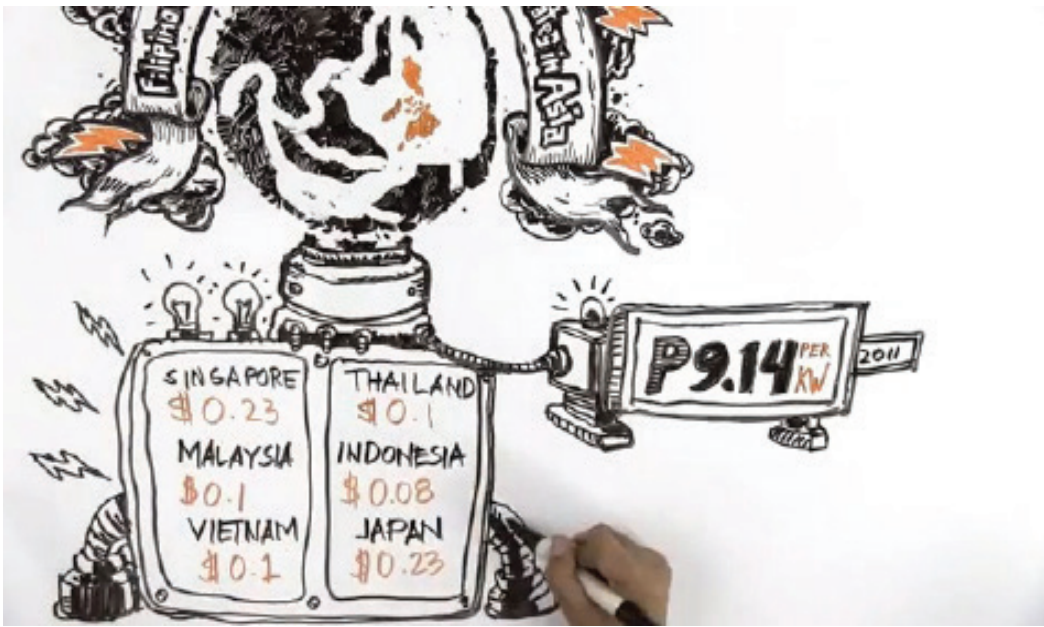 Filipino
in Asia
SINGAPORE
$0.23
MALAYSIA
$0.1
VIETNAM
$0.1
THAILAND
$0.1
INDONESIA
$0.08
JAPAN
$0.23
P9.14 PER
KW
2011